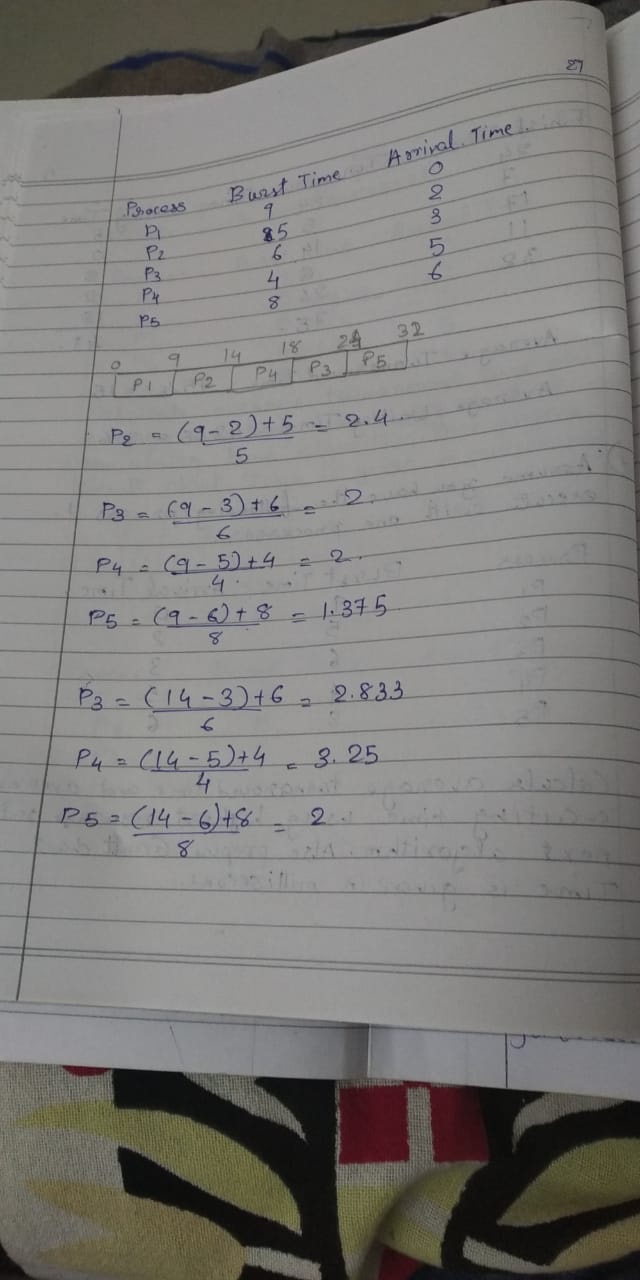 27
Process Burst Time Arrival Time
P1 9 0
P2 5 2
P3 6 3
P4 4 5
P5 8 6
0 9 14 18 24 32
P1 P2 P4 P3 P5
P2 = (9-2)+5 / 5 = 2.4
P3 = (9-3)+6 / 6 = 2
P4 = (9-5)+4 / 4 = 2
P5 = (9-6)+8 / 8 = 1.375
P3 = (14-3)+6 / 6 = 2.833
P4 = (14-5)+4 / 4 = 3.25
P5 = (14-6)+8 / 8 = 2